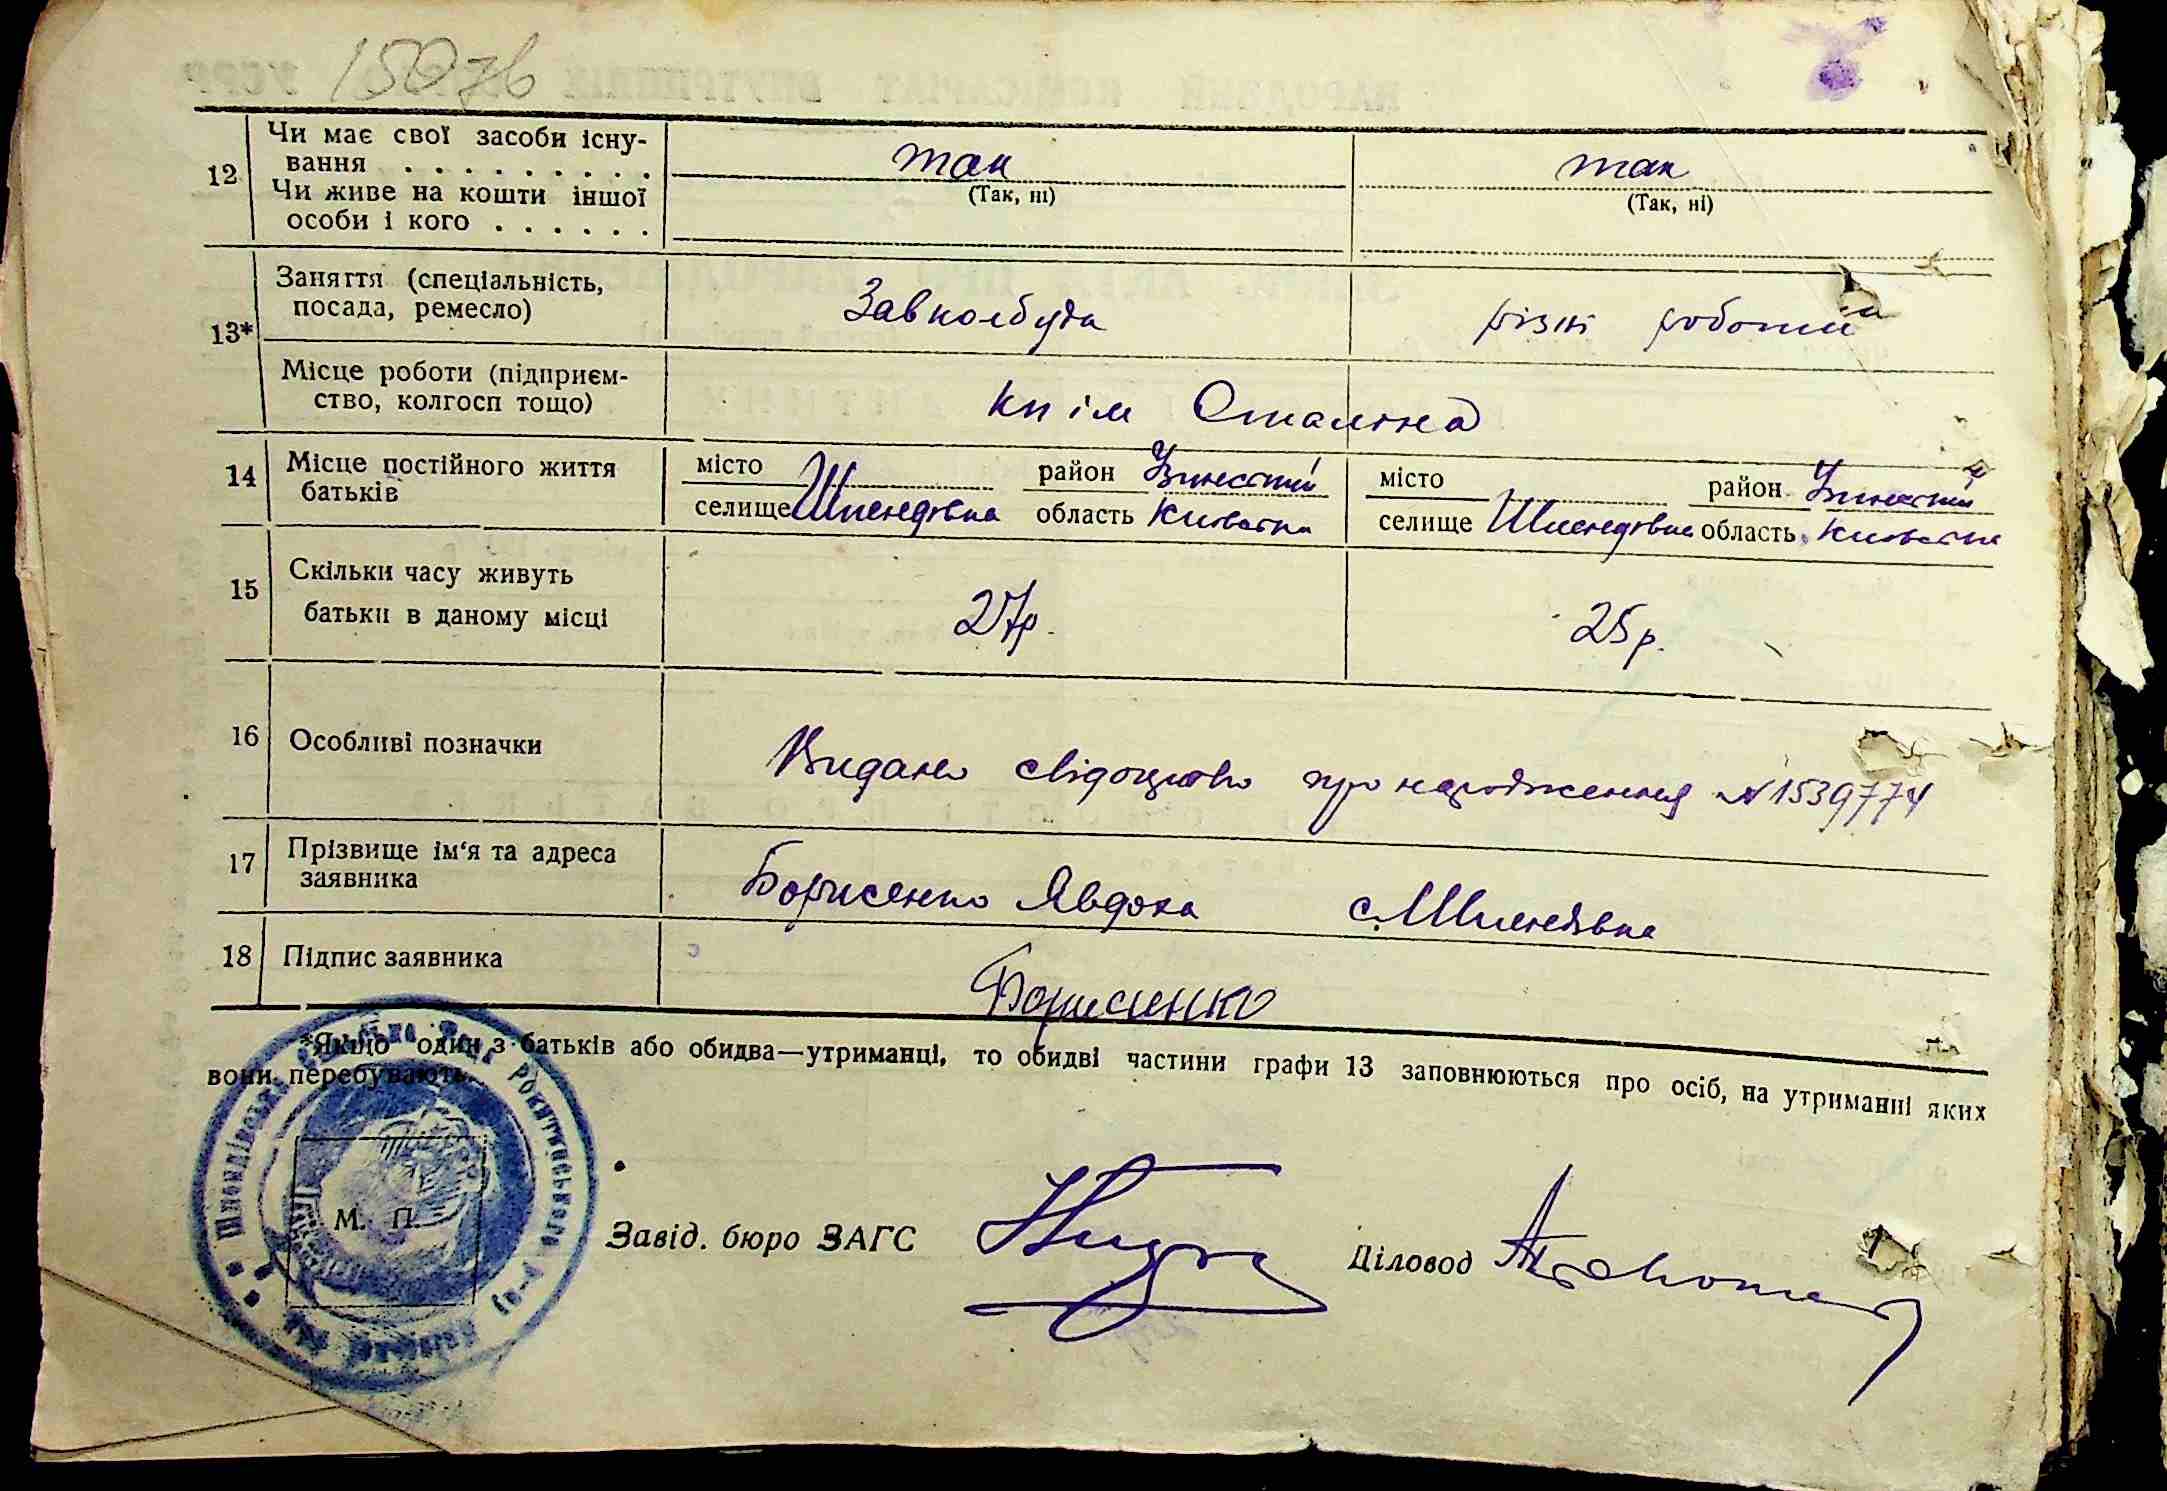 150зв
12 Чи має свої засоби існу-
вання . . . . . . . . . так так
(Так, ні) (Так, ні)
Чи живе на кошти іншої
особи і кого . . . . . .
13* Заняття (спеціальність,
посада, ремесло) Завколбуда різні роботи
Місце роботи (підприєм-
ство, колгосп тощо) кп ім Сталіна
14 Місце постійного життя
батьків
місто район місто район
селище Шпендовка область Киівска селище Шпендовка область Киівска
15 Скільки часу живуть
батьки в даному місці 27р. 25р.
16 Особливі позначки Видано свідоцтво про народження № 1539774
17 Прізвище ім'я та адреса
заявника Борисенко Явдоха с. Шпендівка
18 Підпис заявника Борисенко
*Якщо один з батьків або обидва—утриманці, то обидві частини графи 13 заповнюються про осіб, на утриманні яких
вони перебувають.
М. П.
Завід. бюро ЗАГС Діловод